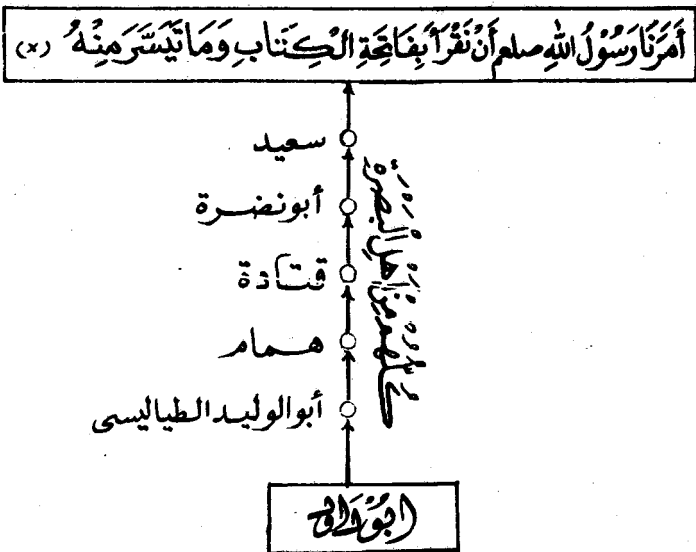 أَمَرَنَا رَسُوْلُ اللهِ صلعم أَنْ نَقْرَأَ بِفَاتِحَةِ الْكِتَابِ وَمَا تَيَسَّرَ مِنْهُ (x)
سعيد
أبو نضرة
قتادة
همام
أبو الوليد الطياليسى
كُلُّهُمْ مِنْ اَهْلِ الْبَصْرَةِ